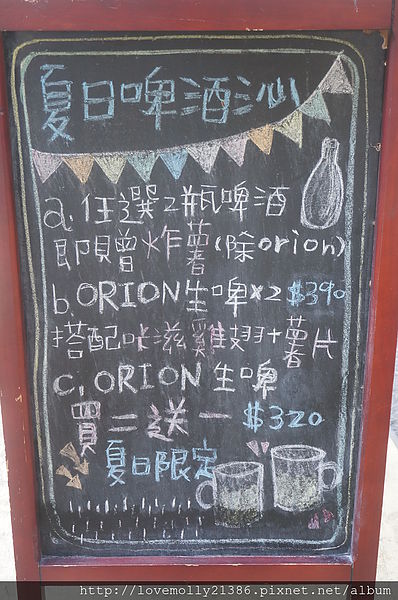 夏日啤酒沁
a.任選2瓶啤酒
即贈炸薯(除orion)
b.ORION生啤x2 $390
搭配咔滋雞翅+薯片
c.ORION生啤
買二送一 $320
夏日限定
http://lovemolly21386.pixnet.net/album